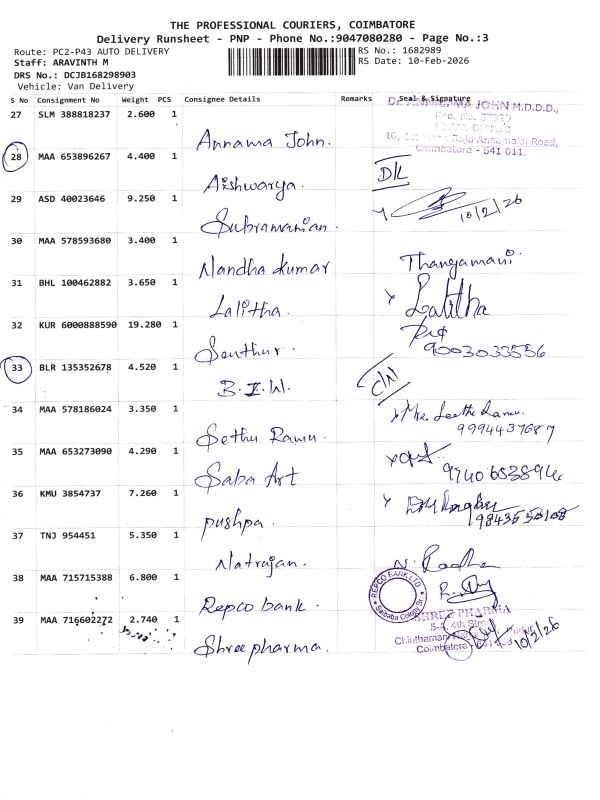 THE PROFESSIONAL COURIERS, COIMBATORE
Delivery Runsheet - PNP - Phone No.:9047080280 - Page No.:3
Route: PC2-P43 AUTO DELIVERY RS No.: 1682989
Staff: ARAVINTH M RS Date: 10-Feb-2026
DRS No.: DCJB168298903
Vehicle: Van Delivery
S No Consignment No Weight PCS Consignee Details Remarks Seal & Signature
27 SLM 388818237 2.600 1 Annama John.
JOHN M.D.D.D.,
Reg. No.
Raju Annamalai Road,
Coimbatore - 641 011.
28 MAA 653896267 4.400 1 Aishwarya. DK
29 ASD 40023646 9.250 1 Subramanian. 10/2/26
30 MAA 578593680 3.400 1 Nandha kumar Thangamani.
31 BHL 100462882 3.650 1 Lalitha. Lalitha
32 KUR 6000888590 19.280 1 Senthur. 9003033556
33 BLR 135352678 4.520 1 B.I.W. C/N
34 MAA 578186024 3.350 1 Sethu Ramu. 9994437687
35 MAA 653273090 4.290 1 Saba Art
36 KMU 3854737 7.260 1 pushpa.
37 TNJ 954451 5.350 1 Natrajan. N. Radha
38 MAA 715715388 6.800 1 Repco bank.
REPCO BANK LTD
Saibaba Colony Br.
39 MAA 716602272 2.740 1 Shree pharma.
SHREE PHARMA
4th Street,
Coimbatore - 641
10/2/26